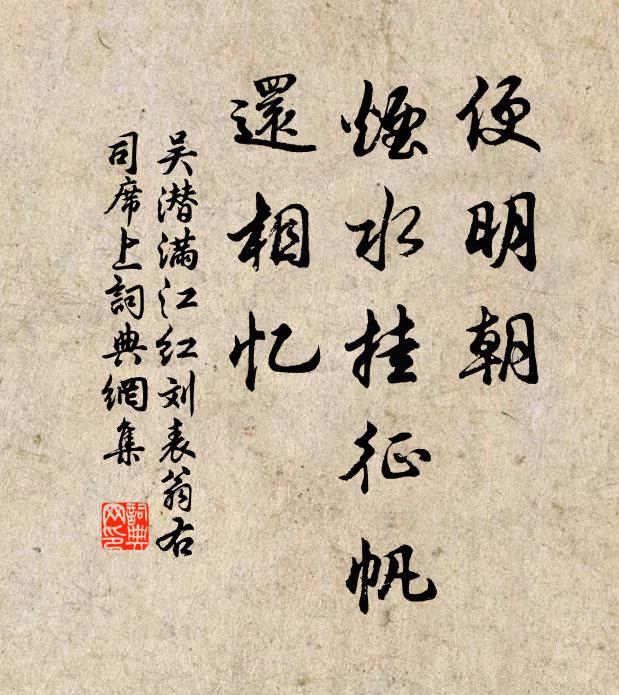 便明朝
煙水挂征帆
還相忆
吴潜满江红刘表翁右
司席上詞典網集
詞典
网印